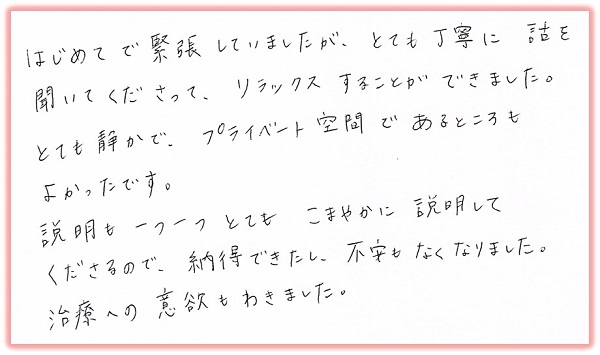 はじめてで緊張していましたが、とても丁寧に話を
聞いてくださって、リラックスすることができました。
とても静かで、プライベート空間であるところも
よかったです。
説明も一つ一つとてもこまやかに説明して
くださるので、納得できたし、不安もなくなりました。
治療への意欲もわきました。